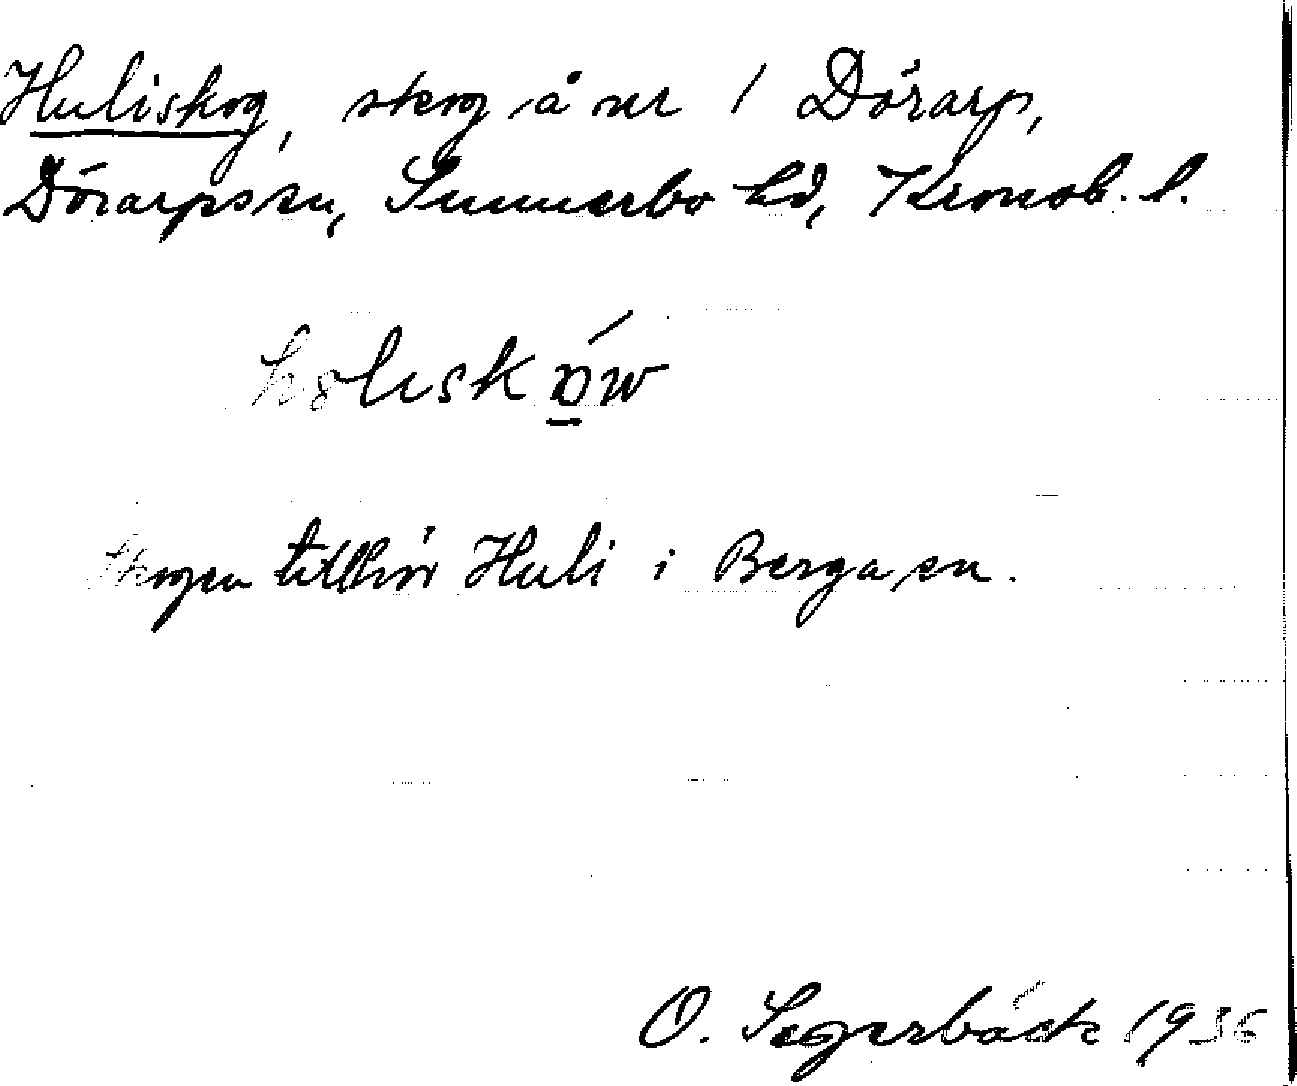 Huliskog, skog å nr 1 Dörarp,
Dörarps sn, Sunnerbo hd, Kronob. l.
Skogen tillhör Huli i Berga sn.
O. Segerbäck 1936